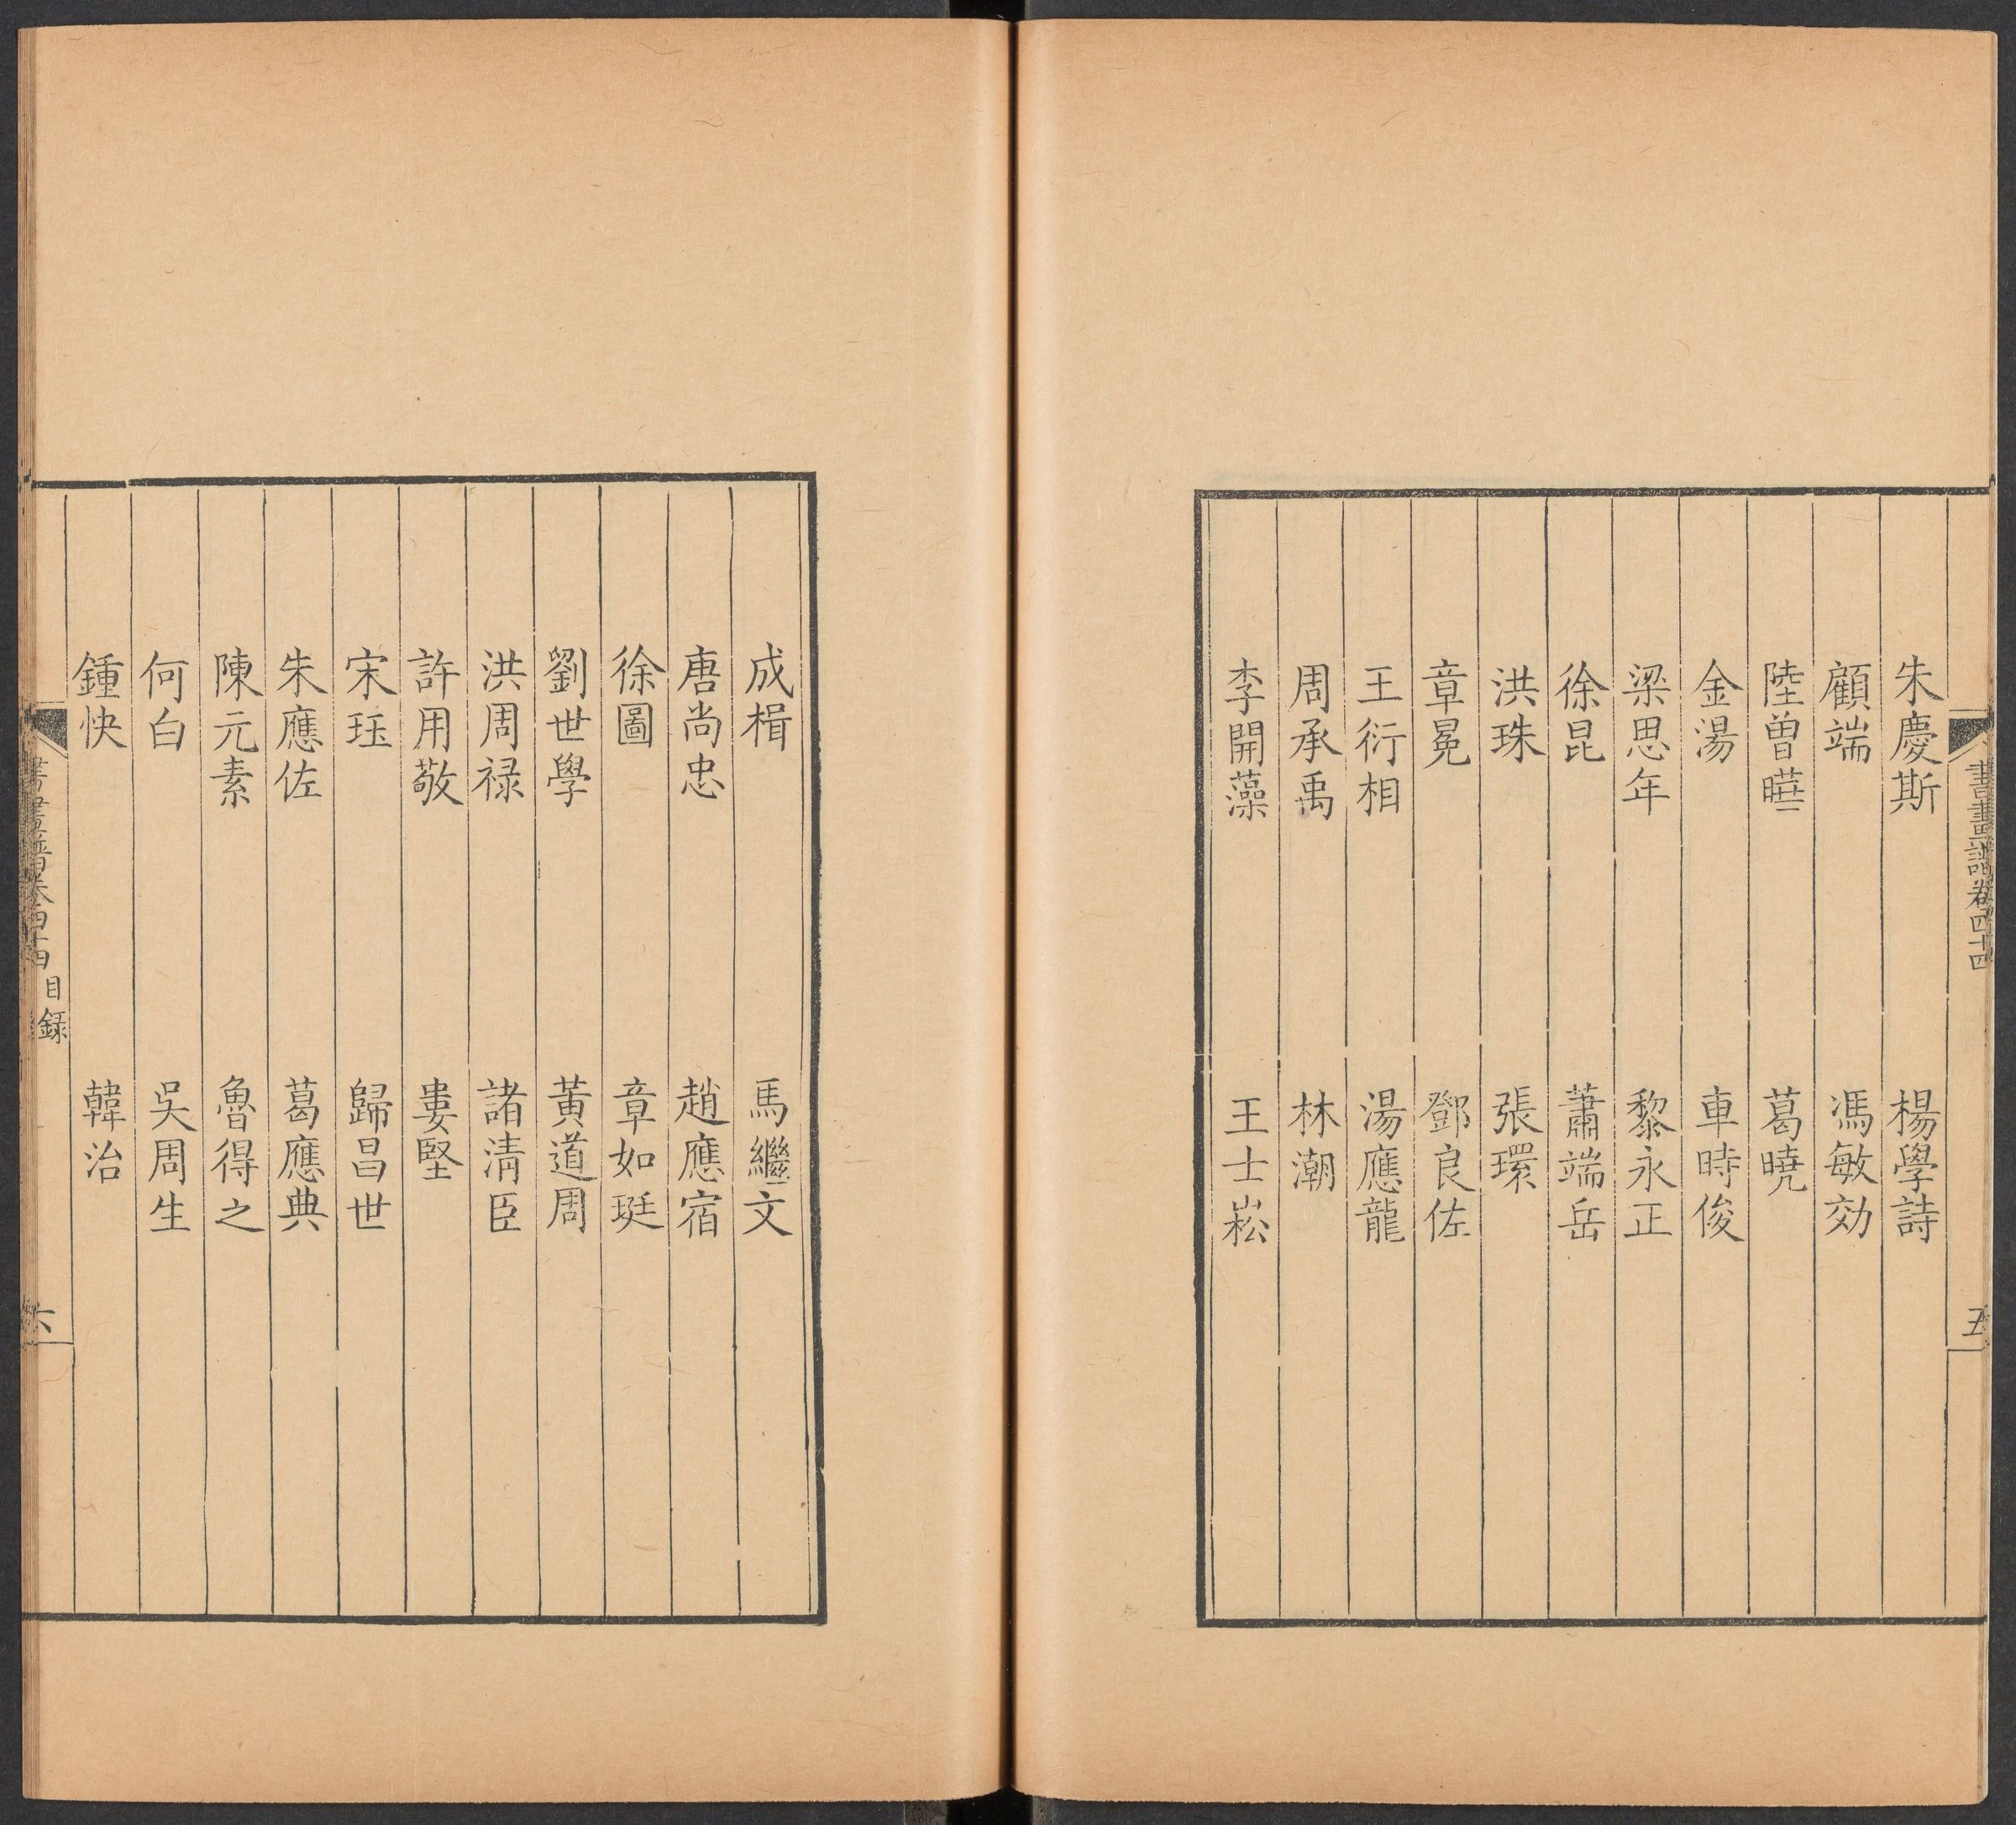 書畫譜卷四十四
五
朱慶斯 楊學詩
顧端 馮敏効
陸曾曄 葛曉
金湯 車時俊
梁思年 黎永正
徐昆 蕭端岳
洪珠 張環
章冕 鄧良佐
王衍相 湯應龍
周承禹 林潮
李開藻 王士崧
成楫 馬繼文
唐尚忠 趙應宿
徐圖 章如珽
劉世學 黃道周
洪周禄 諸清臣
許用敬 婁堅
宋珏 歸昌世
朱應佐 葛應典
陳元素 魯得之
何白 吳周生
鍾快 韓治
書畫譜卷四十四 目録
六